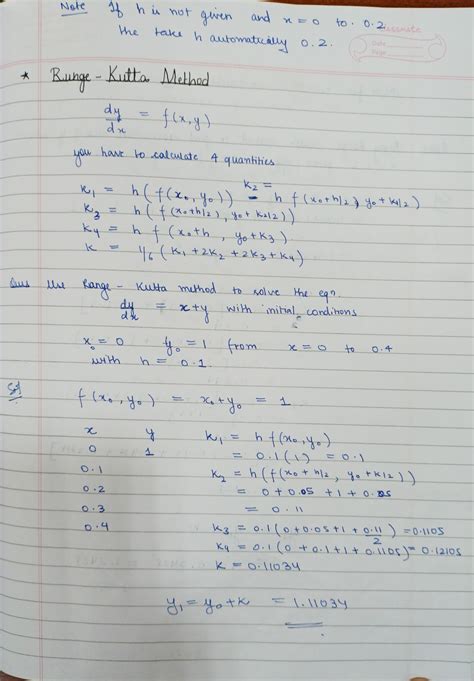 Note If h is not given and x=0 to 0.2
the take h automatically 0.2.
classmate
Date
Page
* Runge-Kutta Method
dy/dx = f(x,y)
you have to calculate 4 quantities.
k₁ = h(f(x₀,y₀)) k₂ = h f(x₀+h/2, y₀+k₁/2)
k₃ = h(f(x₀+h/2, y₀+k₂/2))
k₄ = h f(x₀+h, y₀+k₃)
k = 1/6(k₁+2k₂+2k₃+k₄)
Ques Use Range-Kutta method to solve the eqn.
dy/dx = x+y with initial conditions
x₀=0 y₀=1 from x=0 to 0.4
with h=0.1.
Sol f(x₀,y₀) = x₀+y₀ = 1
x y k₁ = h f(x₀,y₀)
0 1 = 0.1(1) = 0.1
0.1 k₂ = h(f(x₀+h/2, y₀+k₁/2))
0.2 = 0+0.05+1+0.05
0.3 = 0.11
0.4 k₃ = 0.1(0+0.05+1+0.11/2) = 0.1105
k₄ = 0.1(0+0.1+1+0.1105) = 0.12105
k = 0.11034
y₁ = y₀+k = 1.11034